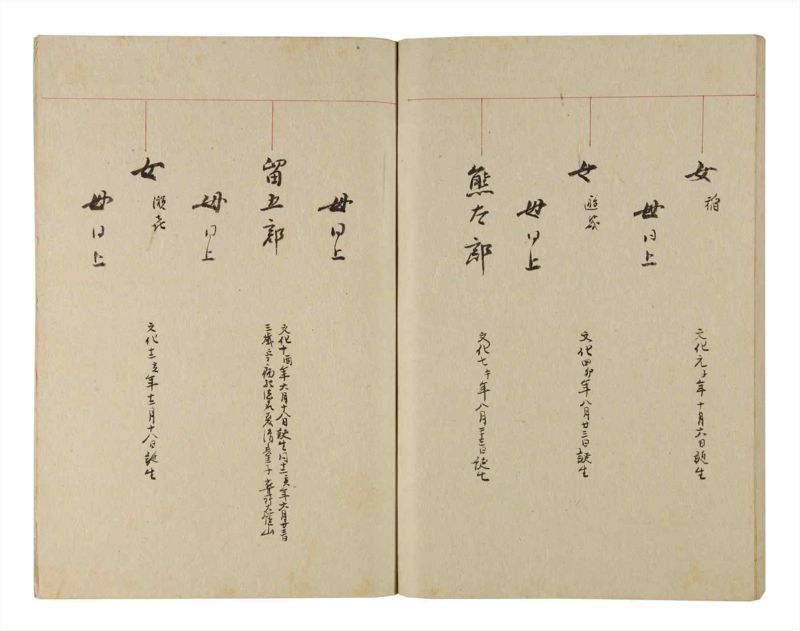 女 稲
母同上
文化元子年十月六日誕生
女 遊幾
母同上
文化四卯年八月廿三日誕生
熊太郎
文化七午年八月二十三日誕生
母同上
留五郎
文化十酉年六月十八日誕生同十二亥年六月廿三日
三歳ニ而病死法名夏清童子葬所大信山
母同上
女 瀬喜
文化十二亥年十二月十八日誕生
母同上